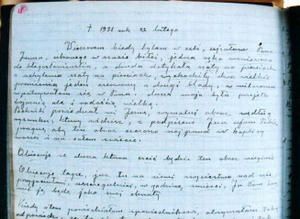 † 1931 rok 22 lutego
Wieczorem kiedy byłam w celi, ujrzałam Pana
Jezusa, ubranego w szacie białej, jedna ręka wzniesiona
do błogosławieństwa, a druga dotykała szaty na piersiach
z uchylenia szaty na piersiach, wychodziły dwa wielkie
promienie, jeden czerwony a drugi blady, w milczeniu
wpatrywałam się w Pana, dusza moja była przejęta
bojaźnią ale i radością wielką.
powiedział mi Jezus, wymaluj obraz, według
rysunku, który widzisz, z podpisem Jezu ufam Tobie
pragnę, aby ten obraz czczono najpierw w kaplicy
waszej i na całym świecie.
Obiecuję, że dusza która czcić będzie ten obraz nie zginie
Obiecuję także, już tu na ziemi zwycięstwo nad
a szczególnie, w godzinę śmierci. Ja Sam
ją będę jako swej chwały